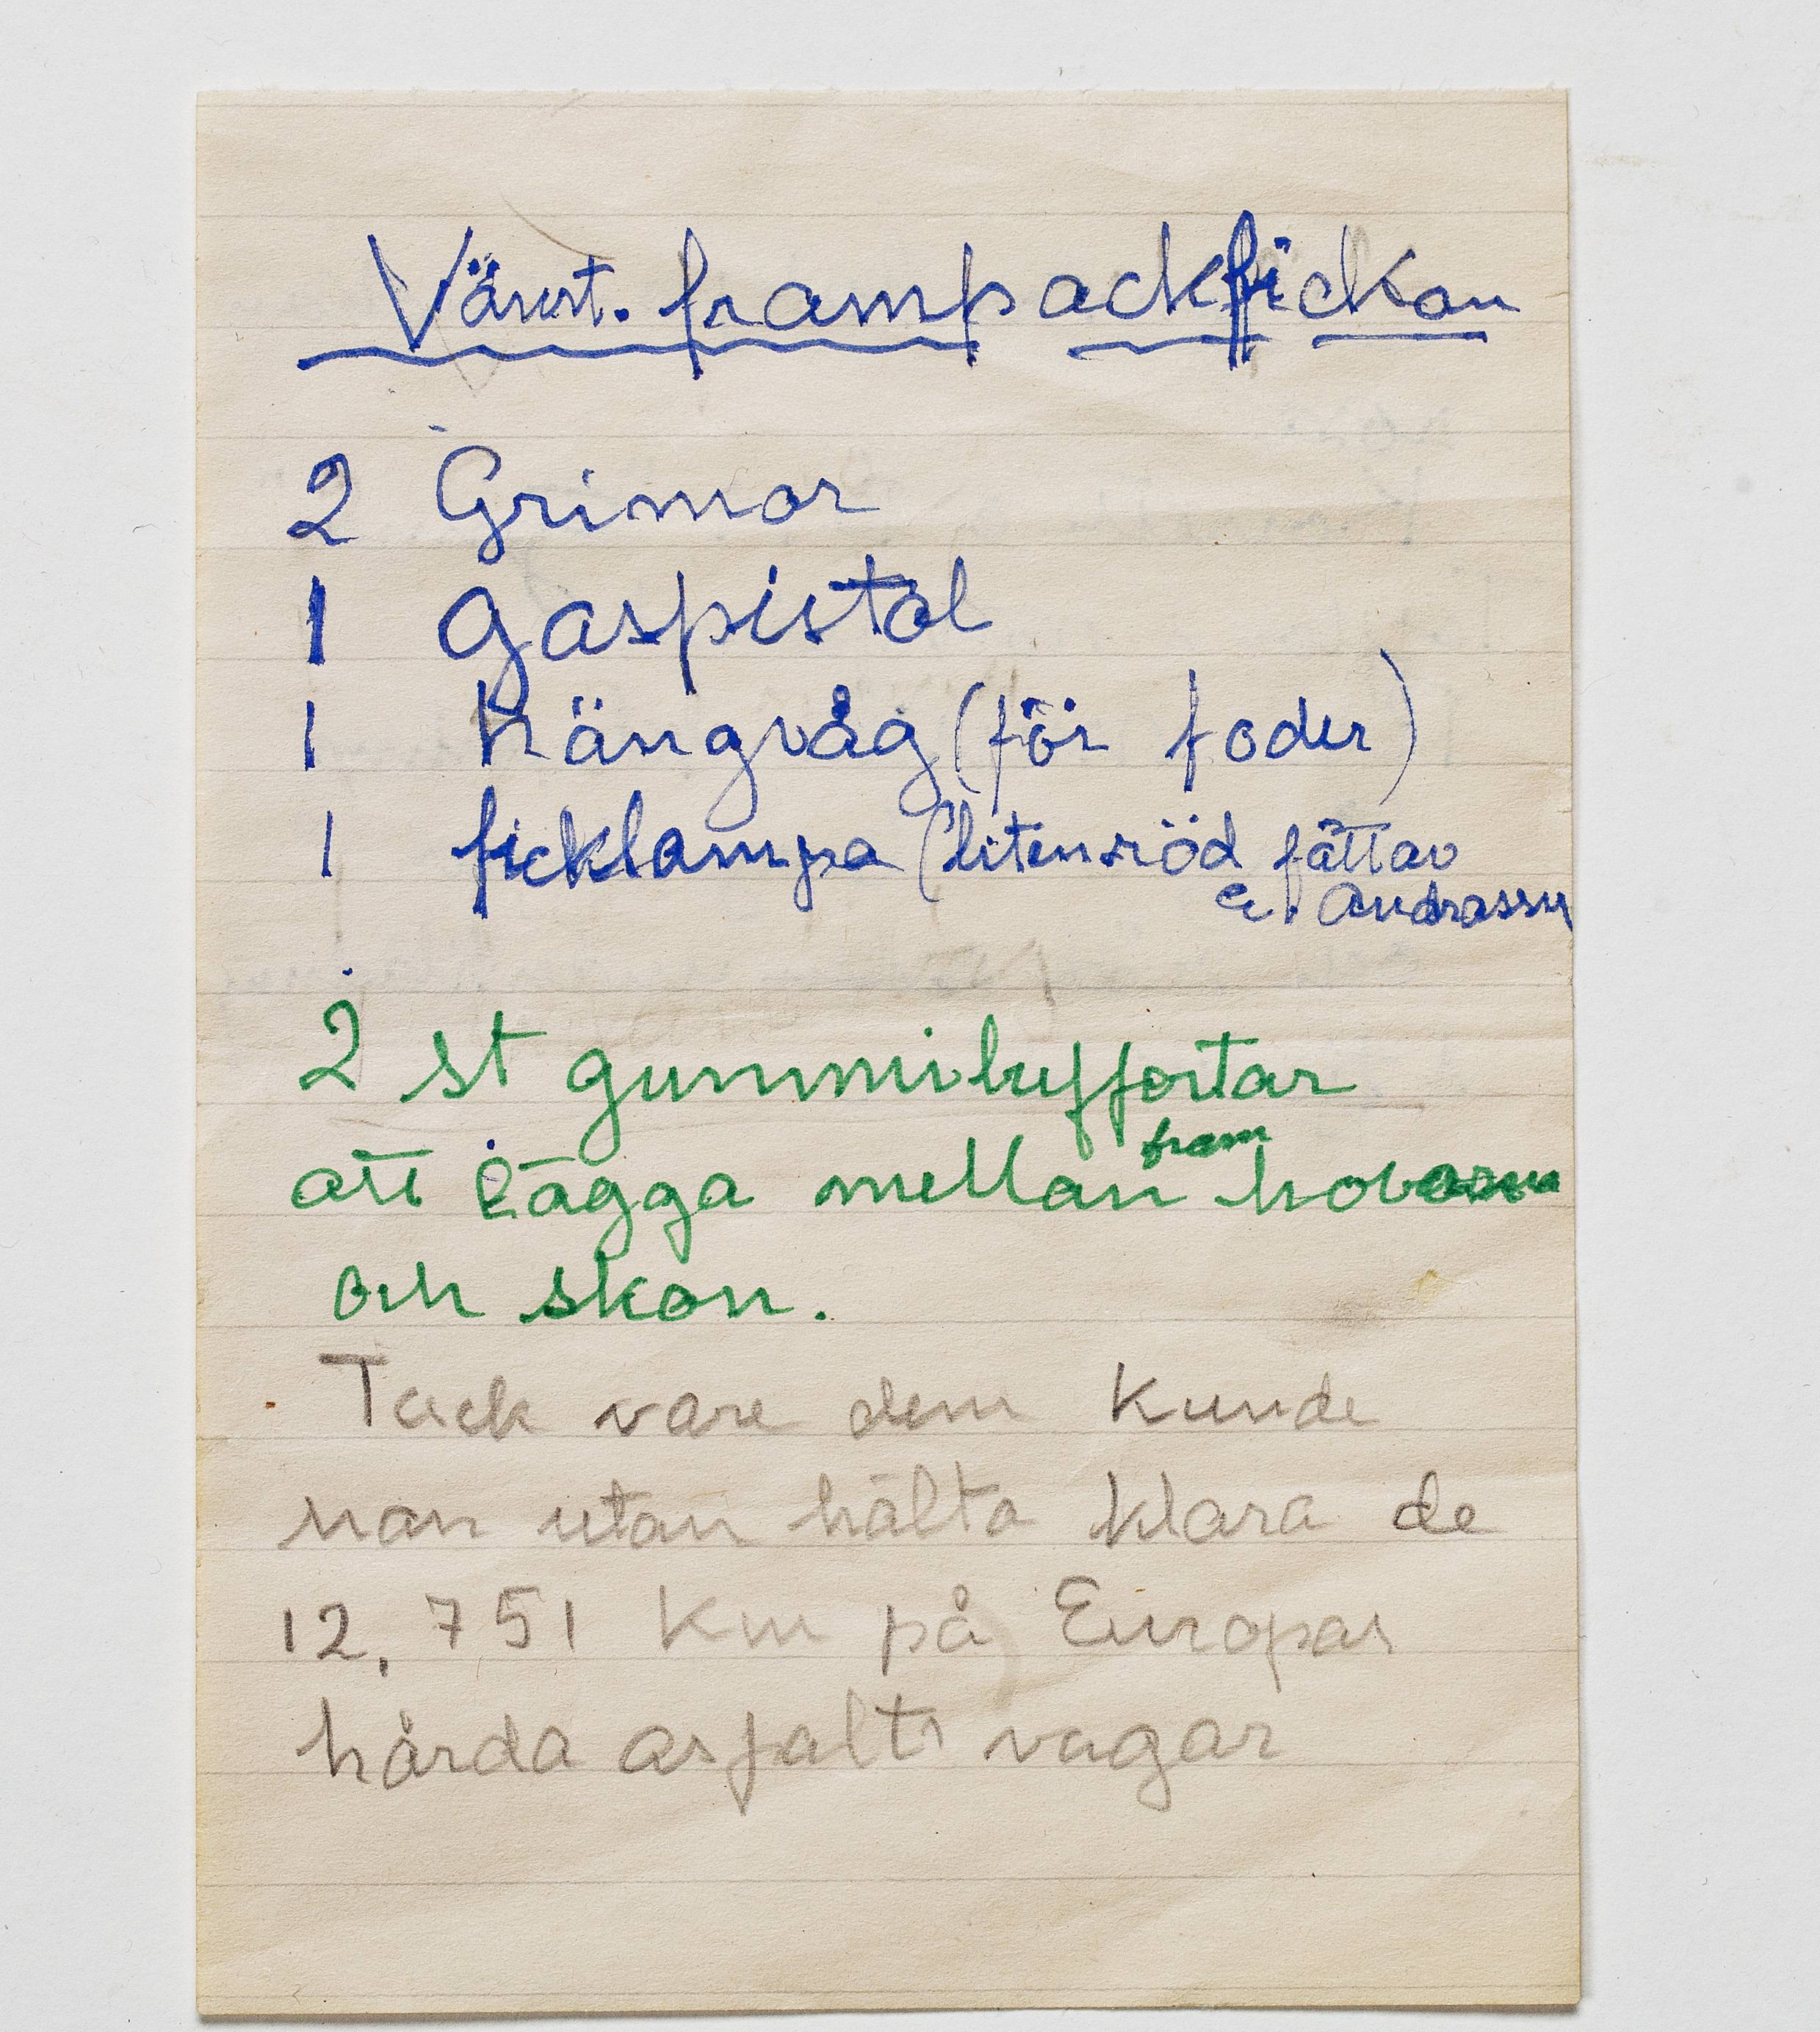 Vänst. frampackfickan
2 Grimor
1 gaspistol
1 hängvåg (för foder)
1 ficklampa (liten röd fått av
e. Andrassy
2 st gummibuffertar
att lägga mellan fram hovarna
och skon.
Tack vare dem kunde
han utan hälta klara de
12.751 km på Europas
hårda asfalts vägar